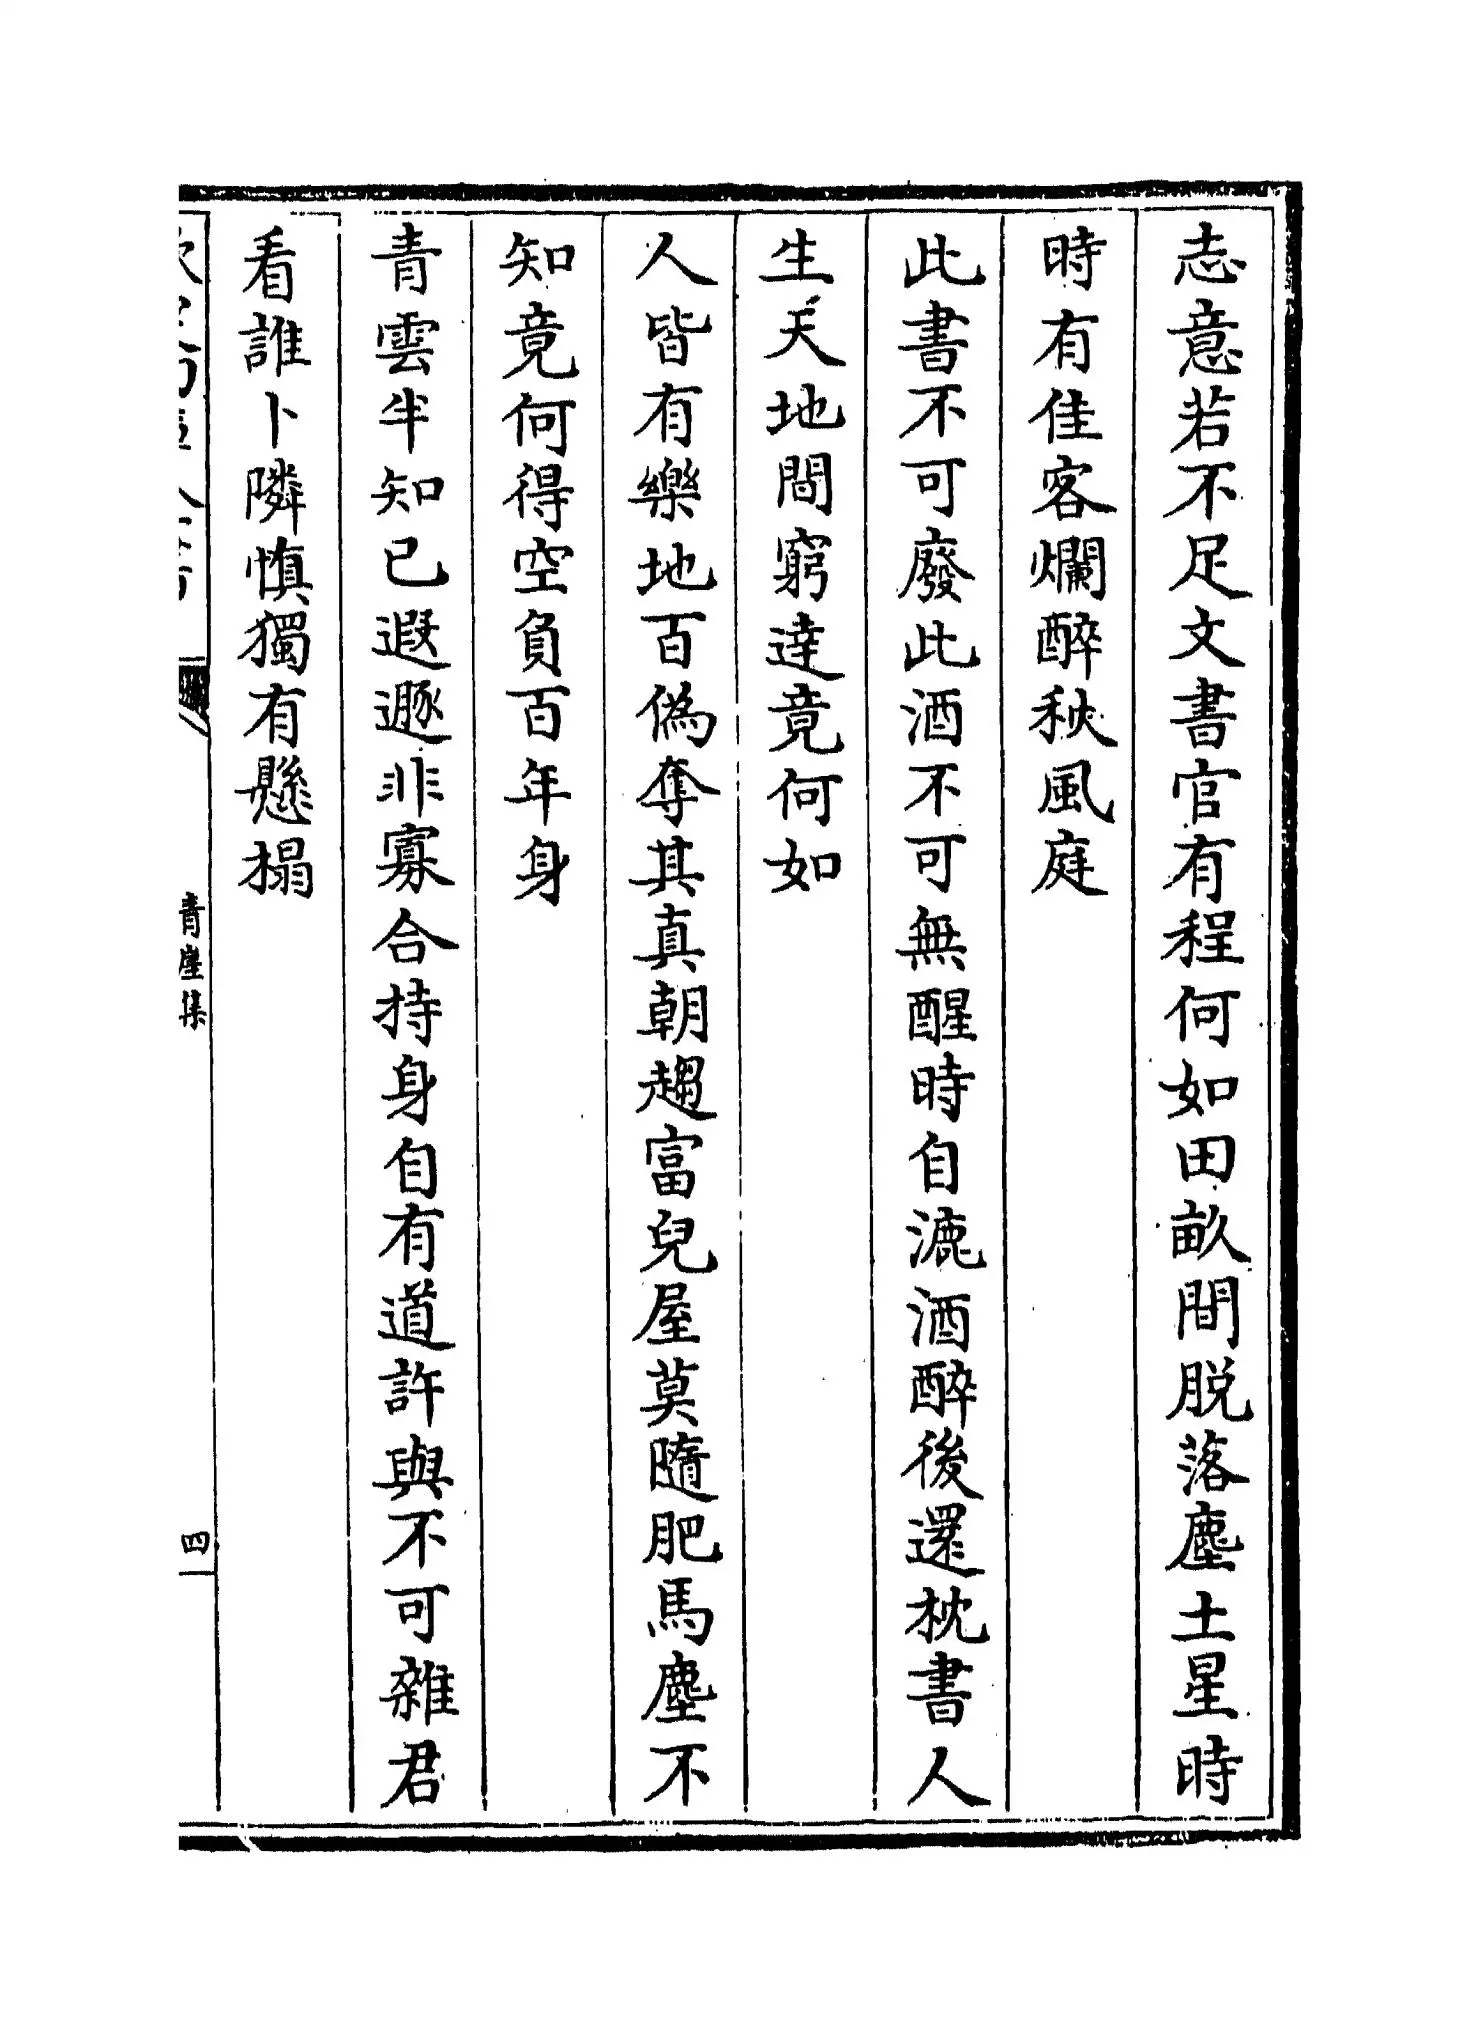 志意若不足文書官有程何如田畝間脱落塵土星時
時有佳客爛醉秋風庭
此書不可廢此酒不可無醒時自漉酒醉後還枕書人
生天地間窮達竟何如
人皆有樂地百偽奪其真朝趨富兒屋莫隨肥馬塵不
知竟何得空負百年身
青雲半知已遐遯非寡合持身自有道許與不可雜君
看誰卜隣慎獨有懸榻
青崖集
四